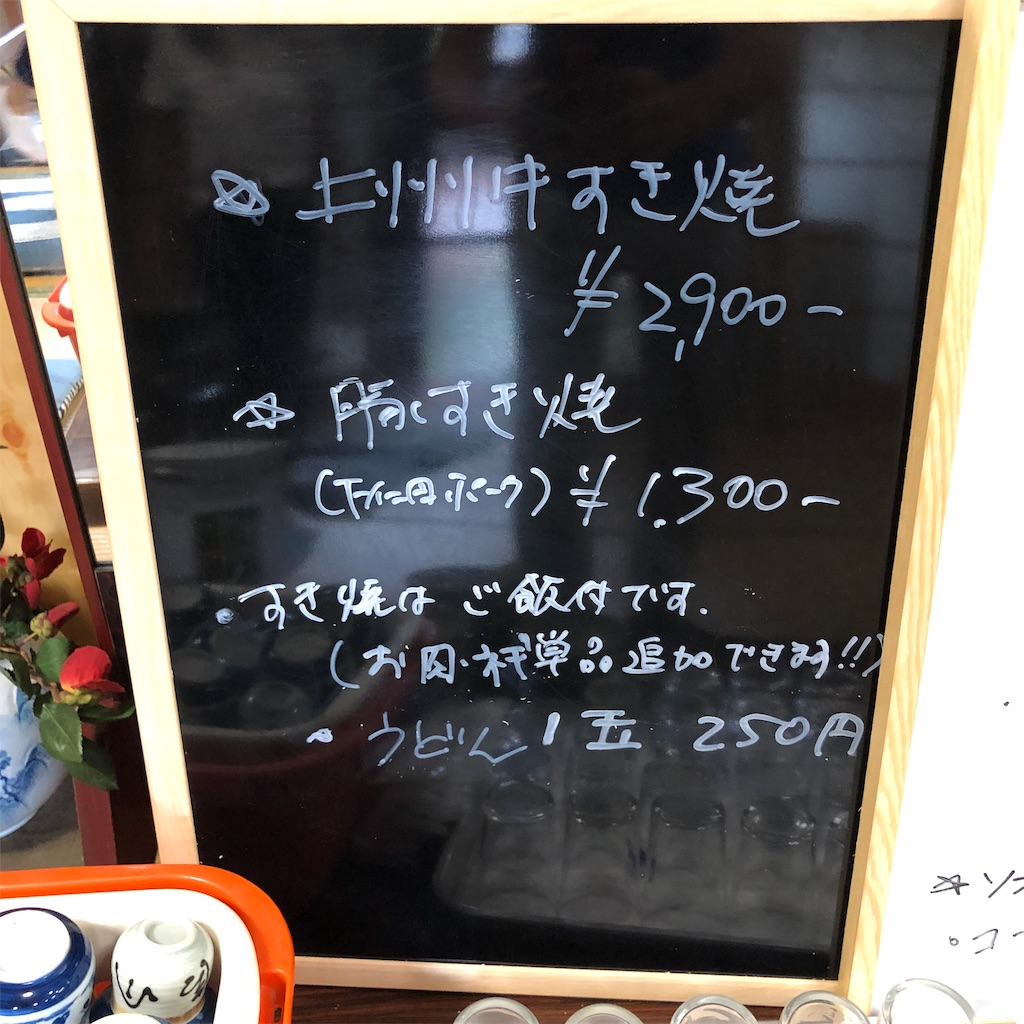 ☆ 上州牛すき焼
¥2,900−
☆ 豚すき焼
(下仁田ポーク) ¥1,300−
・すき焼は ご飯付です.
(お肉・ネギ単品追加できます!!)
・うどん 1玉 250円
☆ソフ
・コー